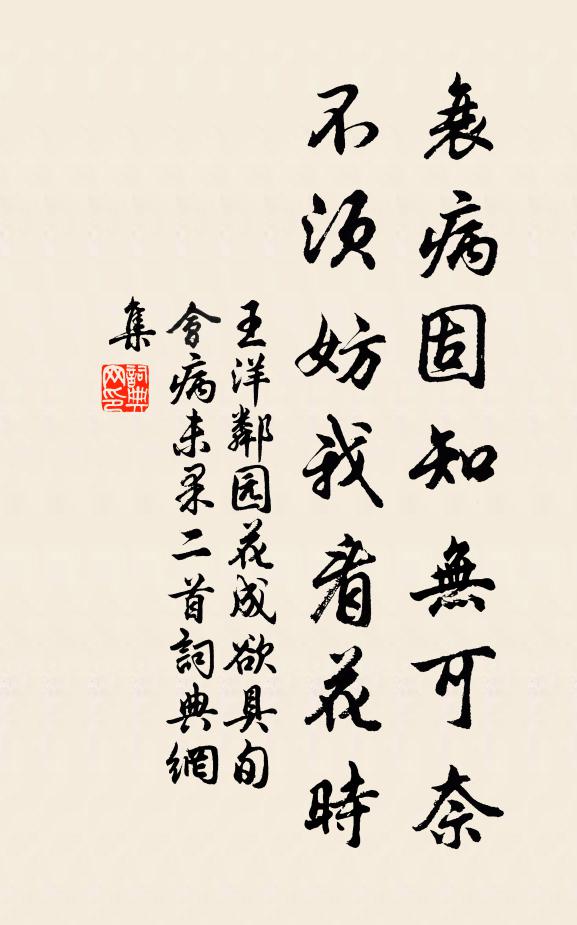 衰病固知無可奈
不須妨我看花時
王洋鄰园花成欲具旬
會病未果二首詞典網
集
詞典
网印